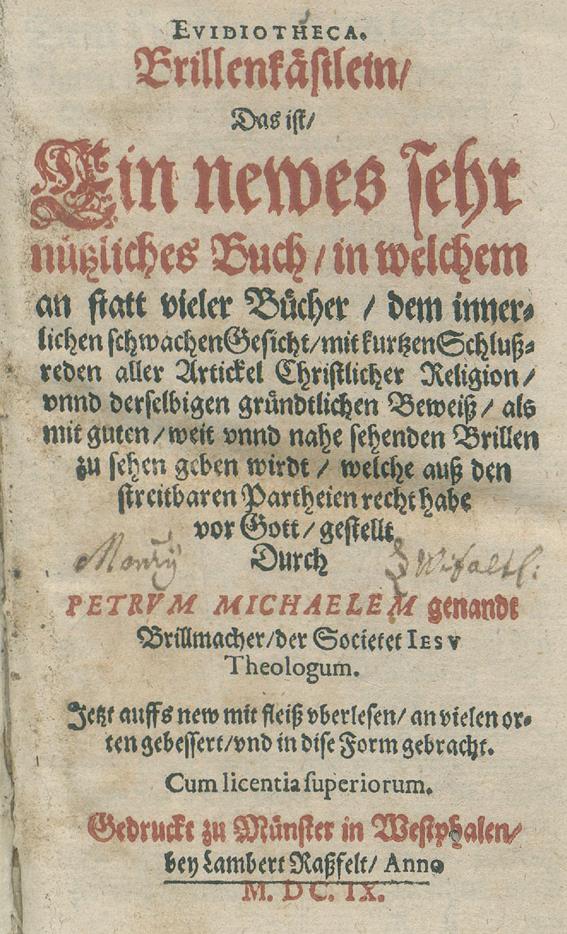 EVIDIOTHECA.
Brillenkästlein/
Das ist/
Ein newes sehr
nützliches Buch / in welchem
an statt vieler Bücher / dem inner-
lichen schwachen Gesicht/mit kurtzen Schluß-
reden aller Artickel Christlicher Religion/
vnnd derselbigen gründtlichen Beweiß / als
mit guten/weit vnnd nahe sehenden Brillen
zu sehen geben wirdt / welche auß den
streitbaren Partheien recht habe
vor Gott / gestellt
Durch
PETRVM MICHAELEM genandt
Brillmacher/der Societet IESV
Theologum.
Jetzt auffs new mit fleiß vberlesen/ an vielen or-
ten gebessert/vnd in dise Form gebracht.
Cum licentia superiorum.
Gedruckt zu Münster in Westphalen/
bey Lambert Raßfelt/ Anno
M. DC. IX.